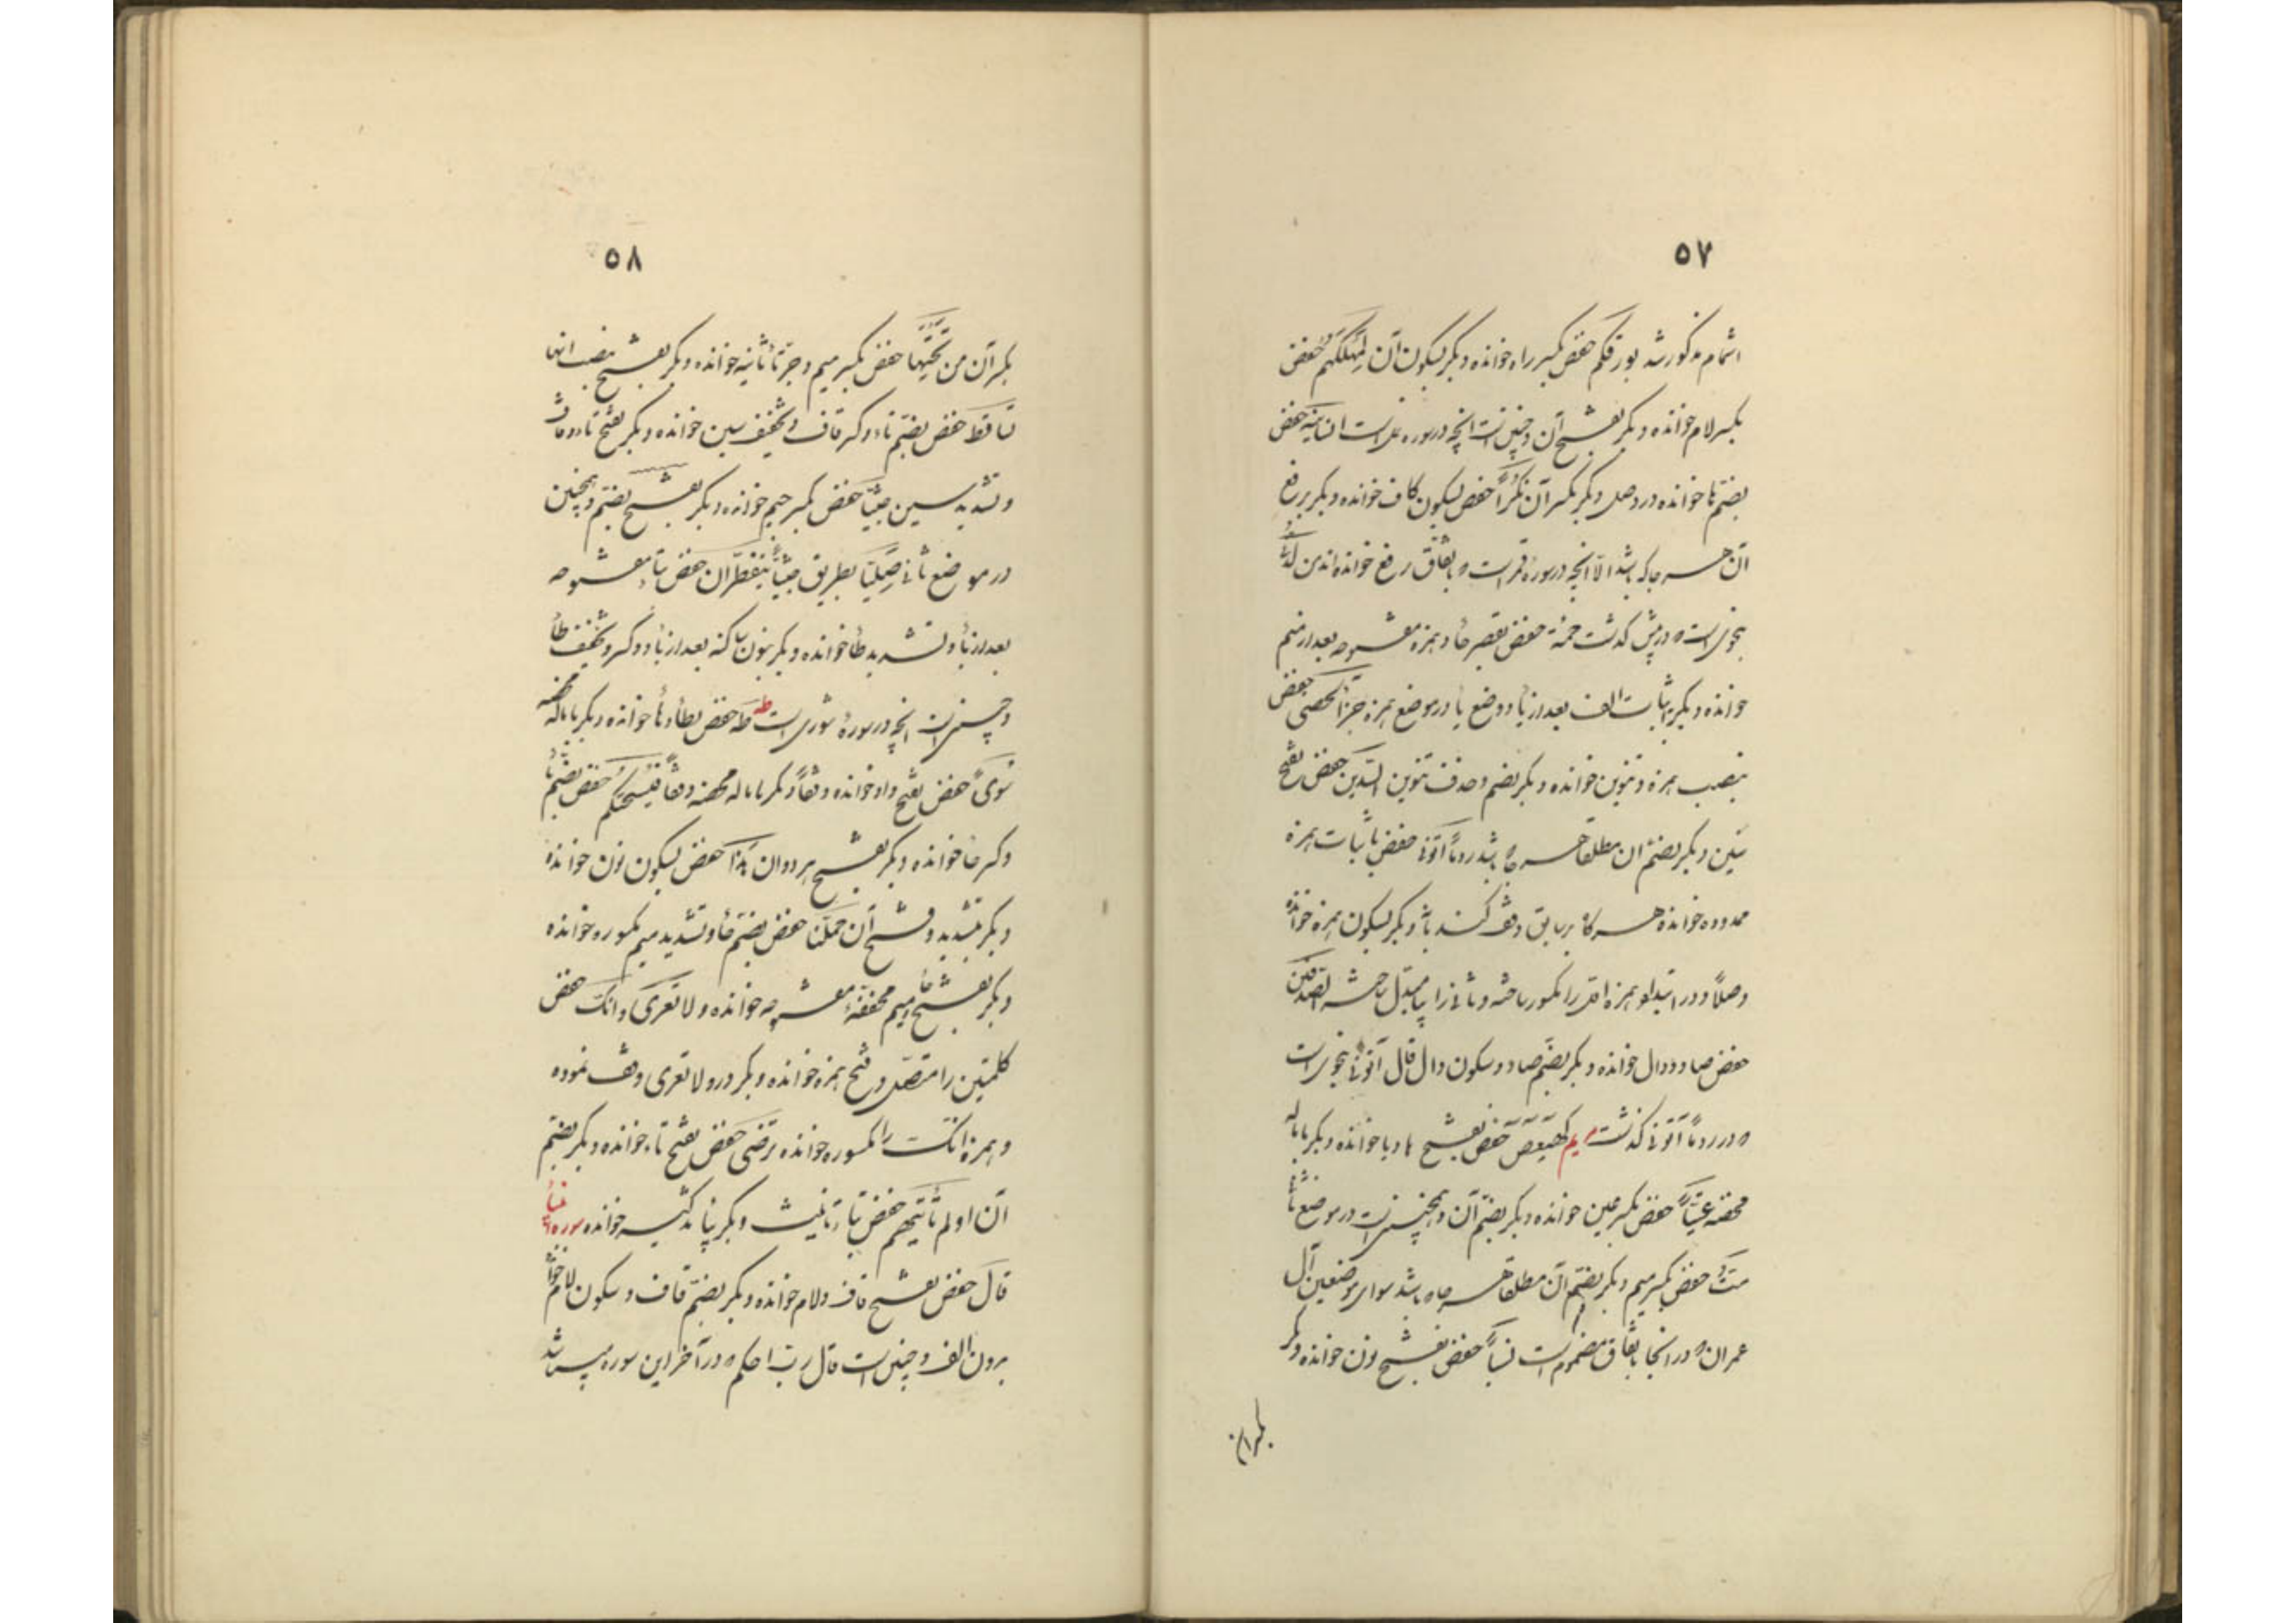 ۵۷
اشمام مذکور شد بورقکم حفص بکسر راء خوانده و بکر بسکون آن لمهلکهم حفص
بکسر لام خوانده و بکر بفتح آن و چنین است آنچه در سوره نمل است انسانیه حفص
بضم ها خوانده در وصل و بکر بکسر آن نکرا حفص بسکون کاف خوانده و بکر برفع
آن هر جا که باشد الا آنچه در سورهٔ قمر است که باتفاق رفع خوانده اند من لدنه
بنحوی است که در پیش گذشت حمئة حفص بقصر حا و همزه مفتوحه بعد از میم
خوانده و بکر باثبات الف بعد از حا و وضع یا در موضع همزه جزآء الحسنی حفص
بنصب همزه و تنوین خوانده و بکر بضم و حذف تنوین السدین حفص بفتح
سین و بکر بضم آن مطلقا هر جا که باشد ردما آتونی حفص باثبات همزه
ممدوده خوانده هر گاه بر سابق وقف کند یا نه و بکر بسکون همزه خوانده
وصلاً و در ابتدا دو همزه اول را مکسور ساخته و ثانی را بیا مبدل ساخته الصدفین
حفص بفتح صاد و دال خوانده و بکر بضم صاد و سکون دال قال آتونی بنحوی است
که در ردماً آتونی گذشت مریم کهیعص حفص بفتح ها و یا خوانده و بکر باماله
محضه عتیاً حفص بکسر عین خوانده و بکر بضم آن و همچنین است در موضع ثانی
متّ حفص بکسر میم و بکر بضم آن مطلقا هر جا که باشد سوای موضعین آل
عمران که در آنجا باتفاق مضموم است نسیاً حفص بفتح نون خوانده و بکر
بکسر آن
۵۸
بکسر آن من تحتها حفص بکسر میم و جر تاء ثانیه خوانده و بکر بفتح بنصب آنها
تساقط حفص بضم تا و کسر قاف و تخفیف سین خوانده و بکر بفتح تا و قاف
و تشدید سین جثیّا حفص بکسر جیم خوانده و بکر بفتح بضم و همچنین
در موضع ثانی صلیّا بطریق جثیّا یتفطّرن حفص بتاء مفتوحه
بعد از یاء و تشدید طاء خوانده و بکر بنون ساکنه بعد از یاء و کسر و تخفیف طاء
و چنین است آنچه در سورهٔ شوری است طه طه حفص بطاء و هاء خوانده و بکر باماله محضه
سوی حفص بفتح واو خوانده وقفاً و بکر باماله محضه وقفاً فیسحتکم حفص بضم یاء
و کسر حا خوانده و بکر بفتح هر دو ان هذا حفص بسکون نون خوانده
و بکر بتشدید و فتح آن حملنا حفص بضم حاء و تشدید میم مکسوره خوانده
و بکر بفتح حاء و میم مخففهٔ مفتوحه خوانده و لا تعری و انک حفص
کلمتین را متصل و فتح همزه خوانده و بکر در و لا تعری وقف نموده
و همزه انک را مکسوره خوانده ترضی حفص بفتح تاء خوانده و بکر بضم
آن اولم تأتهم حفص بتاء تانیث و بکر بیاء تذکیر خوانده سوره انبیاء
قال حفص بفتح قاف و لام خوانده و بکر بضم قاف و سکون لام خوانده
بدون الف و چنین است قال رب احکم که در آخر این سوره میباشد